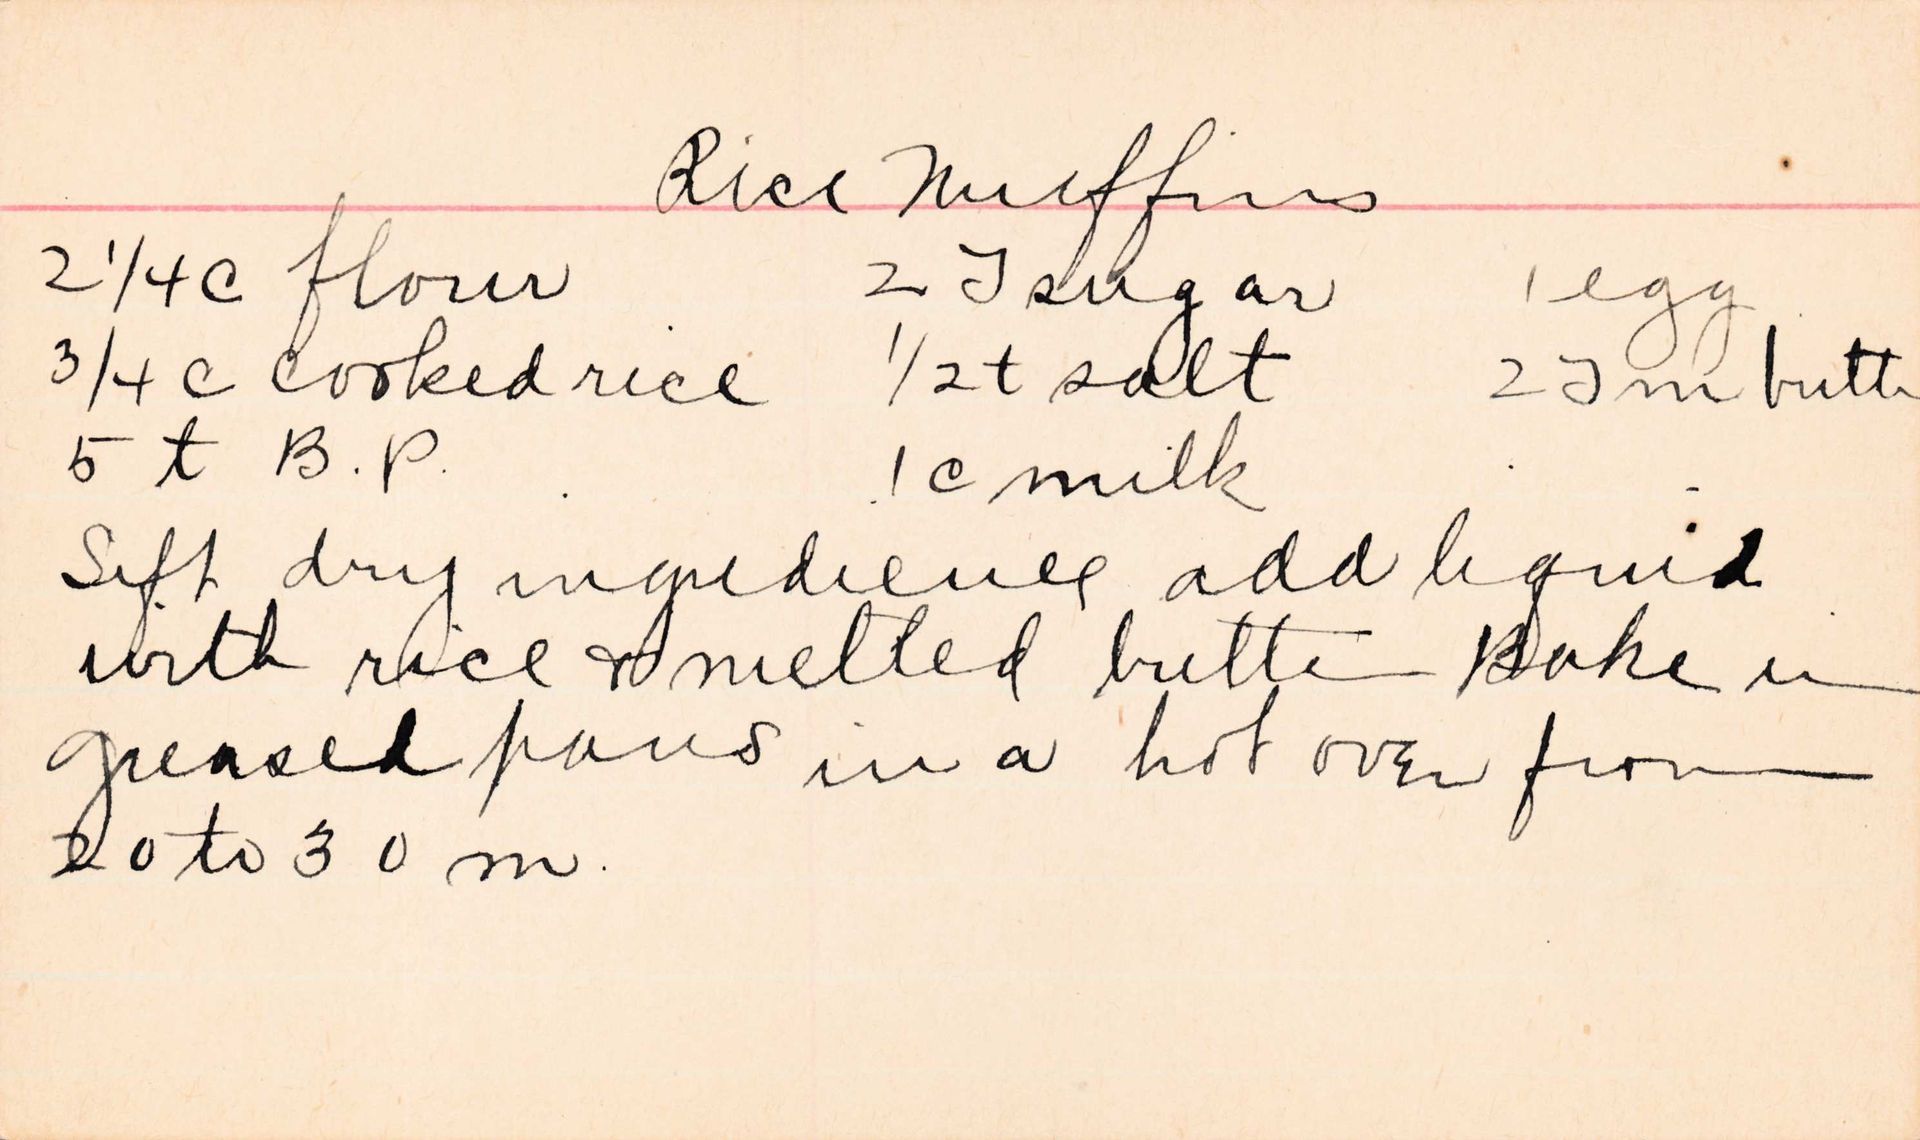 Rice Muffins
2 1/4 c flour 2 T sugar 1 egg
3/4 c cooked rice 1/2 t salt 2 T m butte
5 t B.P. 1 c milk
Sift dry ingredience add liquid
with rice & melted butter Bake in
greased pans in a hot oven from
20 to 30 m.